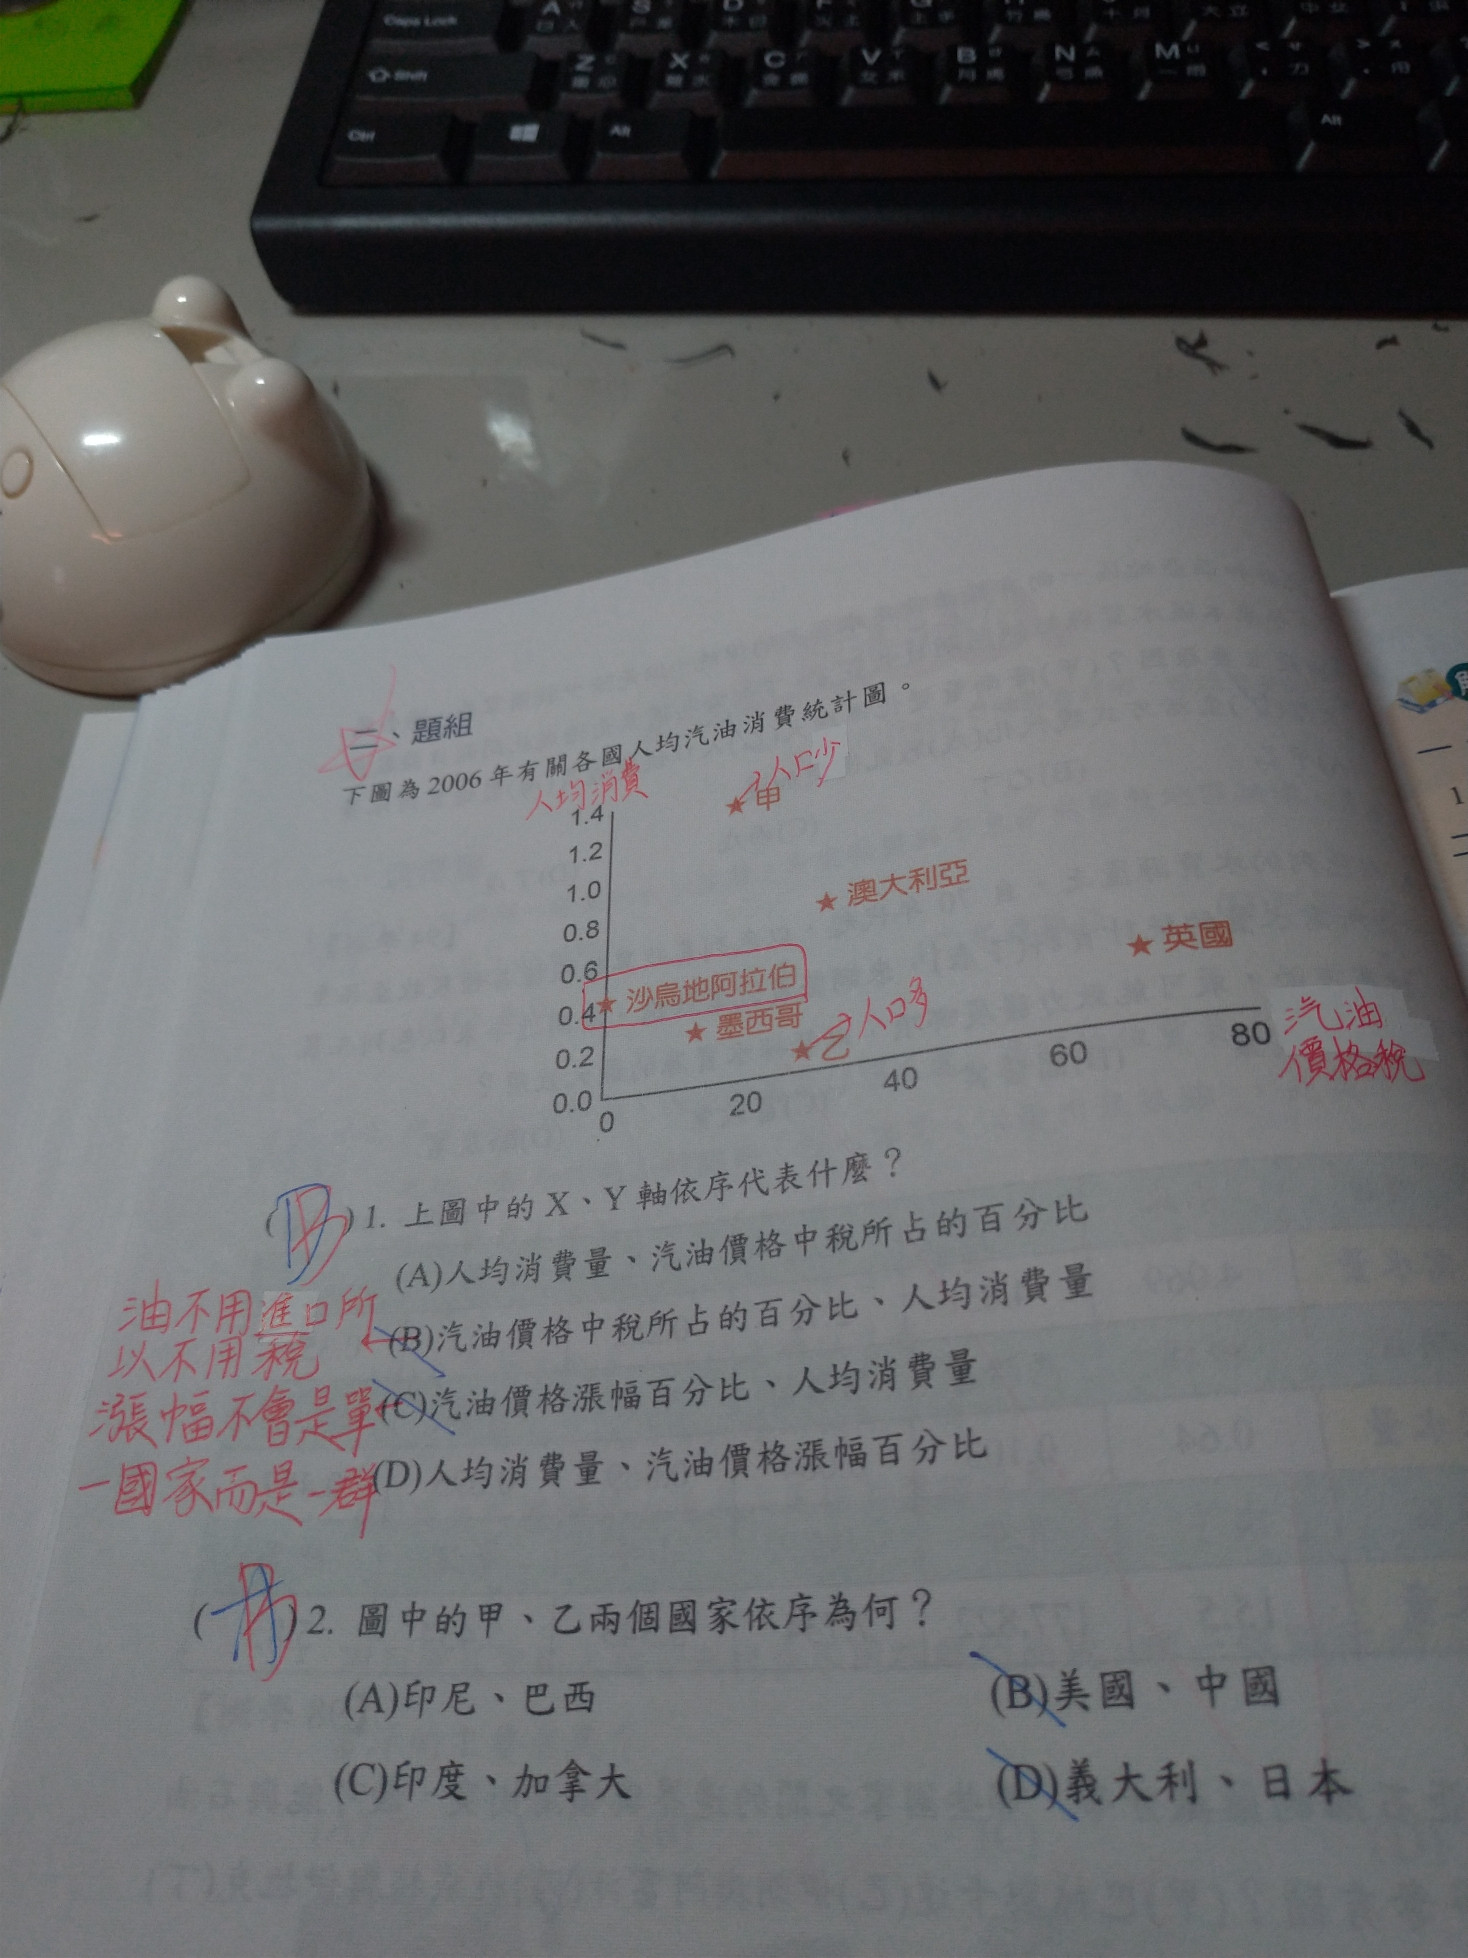 Caps Lock
A
S
D
Shift
Z
X
C
V
B
N
M
Ctrl
Alt
Alt
二、題組
下圖為 2006 年有關各國人均汽油消費統計圖。
人均消費
甲
人口少
1.4
1.2
1.0
0.8
0.6
0.4
0.2
0.0
澳大利亞
英國
沙烏地阿拉伯
墨西哥
乙
人口多
0
20
40
60
80
汽油
價格稅
( B ) 1. 上圖中的 X、Y 軸依序代表什麼？
(A)人均消費量、汽油價格中稅所占的百分比
油不用進口所
以不用稅
(B)汽油價格中稅所占的百分比、人均消費量
漲幅不會是單
(C)汽油價格漲幅百分比、人均消費量
一國家而是一群
(D)人均消費量、汽油價格漲幅百分比
( B ) 2. 圖中的甲、乙兩個國家依序為何？
(A)印尼、巴西
(B)美國、中國
(C)印度、加拿大
(D)義大利、日本